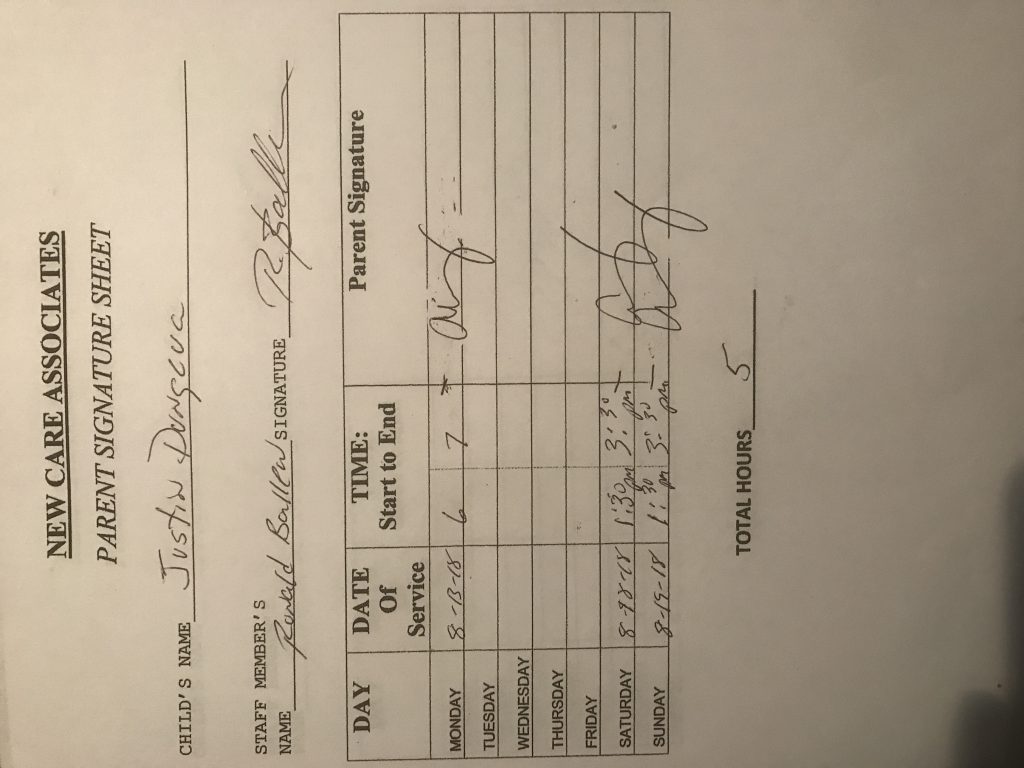 NEW CARE ASSOCIATES
PARENT SIGNATURE SHEET
CHILD'S NAME Justin
STAFF MEMBER'S
NAME Ronald Ballew SIGNATURE
DAY DATE Of Service TIME: Start to End Parent Signature
MONDAY 8-13-18 6 7
TUESDAY
WEDNESDAY
THURSDAY
FRIDAY
SATURDAY 8-18-18 1:30 pm 3:30 pm
SUNDAY 8-19-18 1:30 pm 3:30 pm
TOTAL HOURS 5